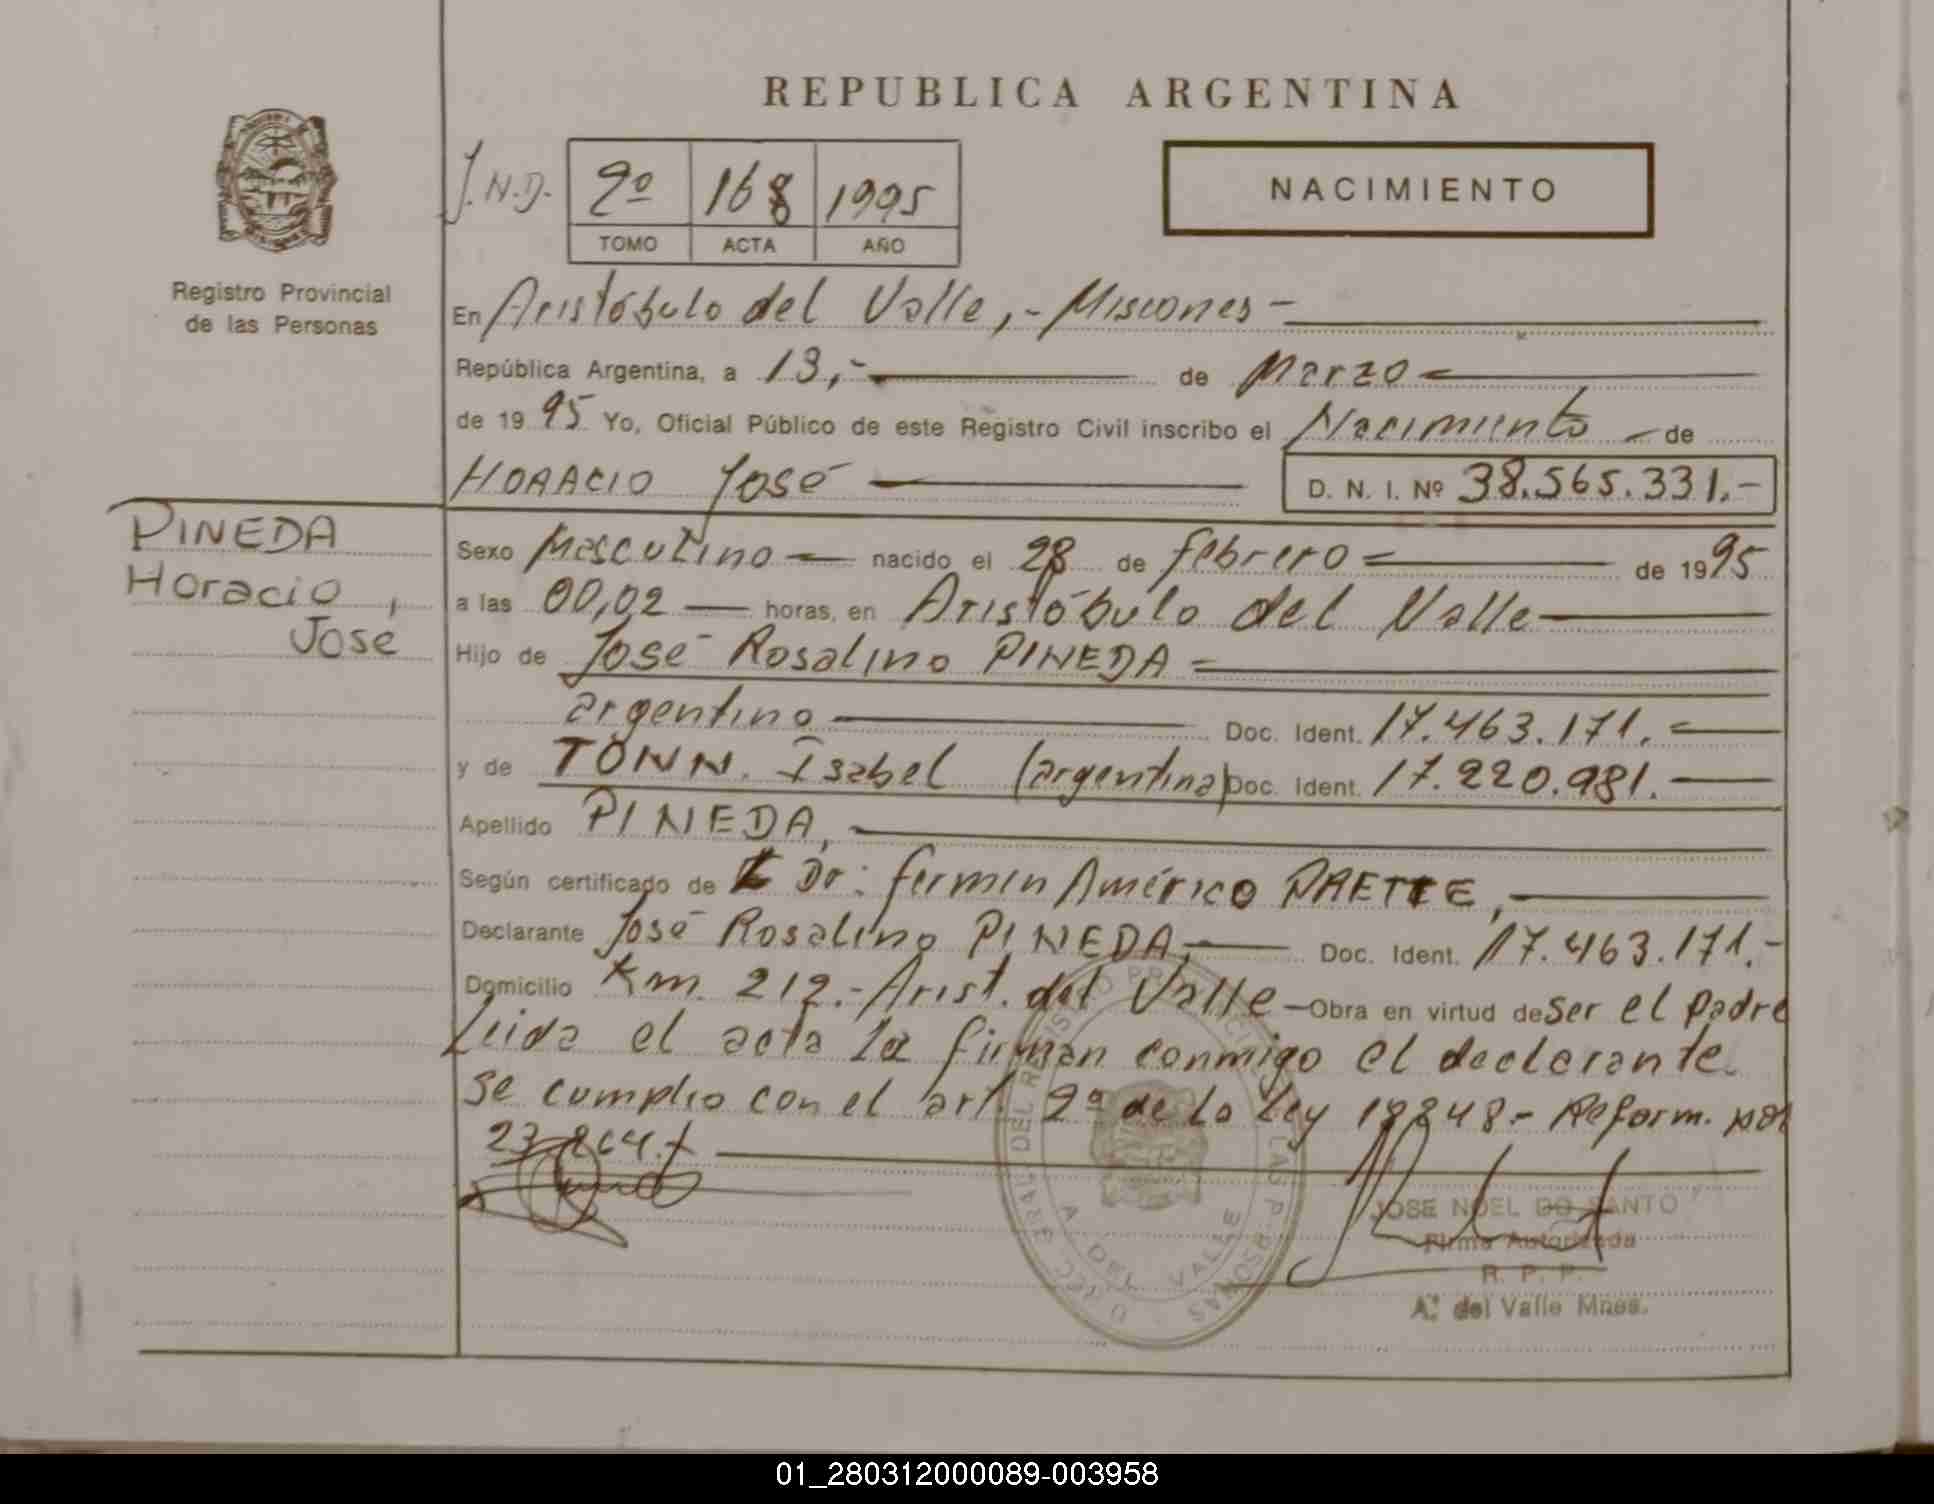 REPUBLICA ARGENTINA
J.N.D. 2º 168 1995
TOMO ACTA AÑO
NACIMIENTO
Registro Provincial
de las Personas
En Aristóbulo del Valle,- Misiones -
República Argentina, a 13,- de Marzo
de 1995 Yo, Oficial Público de este Registro Civil inscribo el Nacimiento de
HORACIO José
D. N. I. Nº 38.565.331.-
PINEDA
Horacio,
José
Sexo Masculino nacido el 28 de febrero de 1995
a las 00,02 horas, en Aristóbulo del Valle
Hijo de José Rosalino PINEDA
argentino Doc. Ident. 17.463.171.
y de TONN. Isabel (argentina) Doc. Ident. 17.220.981.
Apellido PINEDA,
Según certificado de Dr: fermin Américo
Declarante José Rosalino PINEDA, Doc. Ident. 17.463.171.-
Domicilio Km. 212.- Arist. del Valle Obra en virtud de ser el padre
Leida el acta la firman conmigo el declarante
se cumplio con el art. 2º de la Ley 18248.- Reform. por
23.264.
DIREC. GRAL. DEL REGISTRO PROVINCIAL DE LAS PERSONAS
A. DEL VALLE
JOSE NOEL DO SANTO
Firma Autorizada
R. P. P.
A.º del Valle Mnes.
01_280312000089-003958